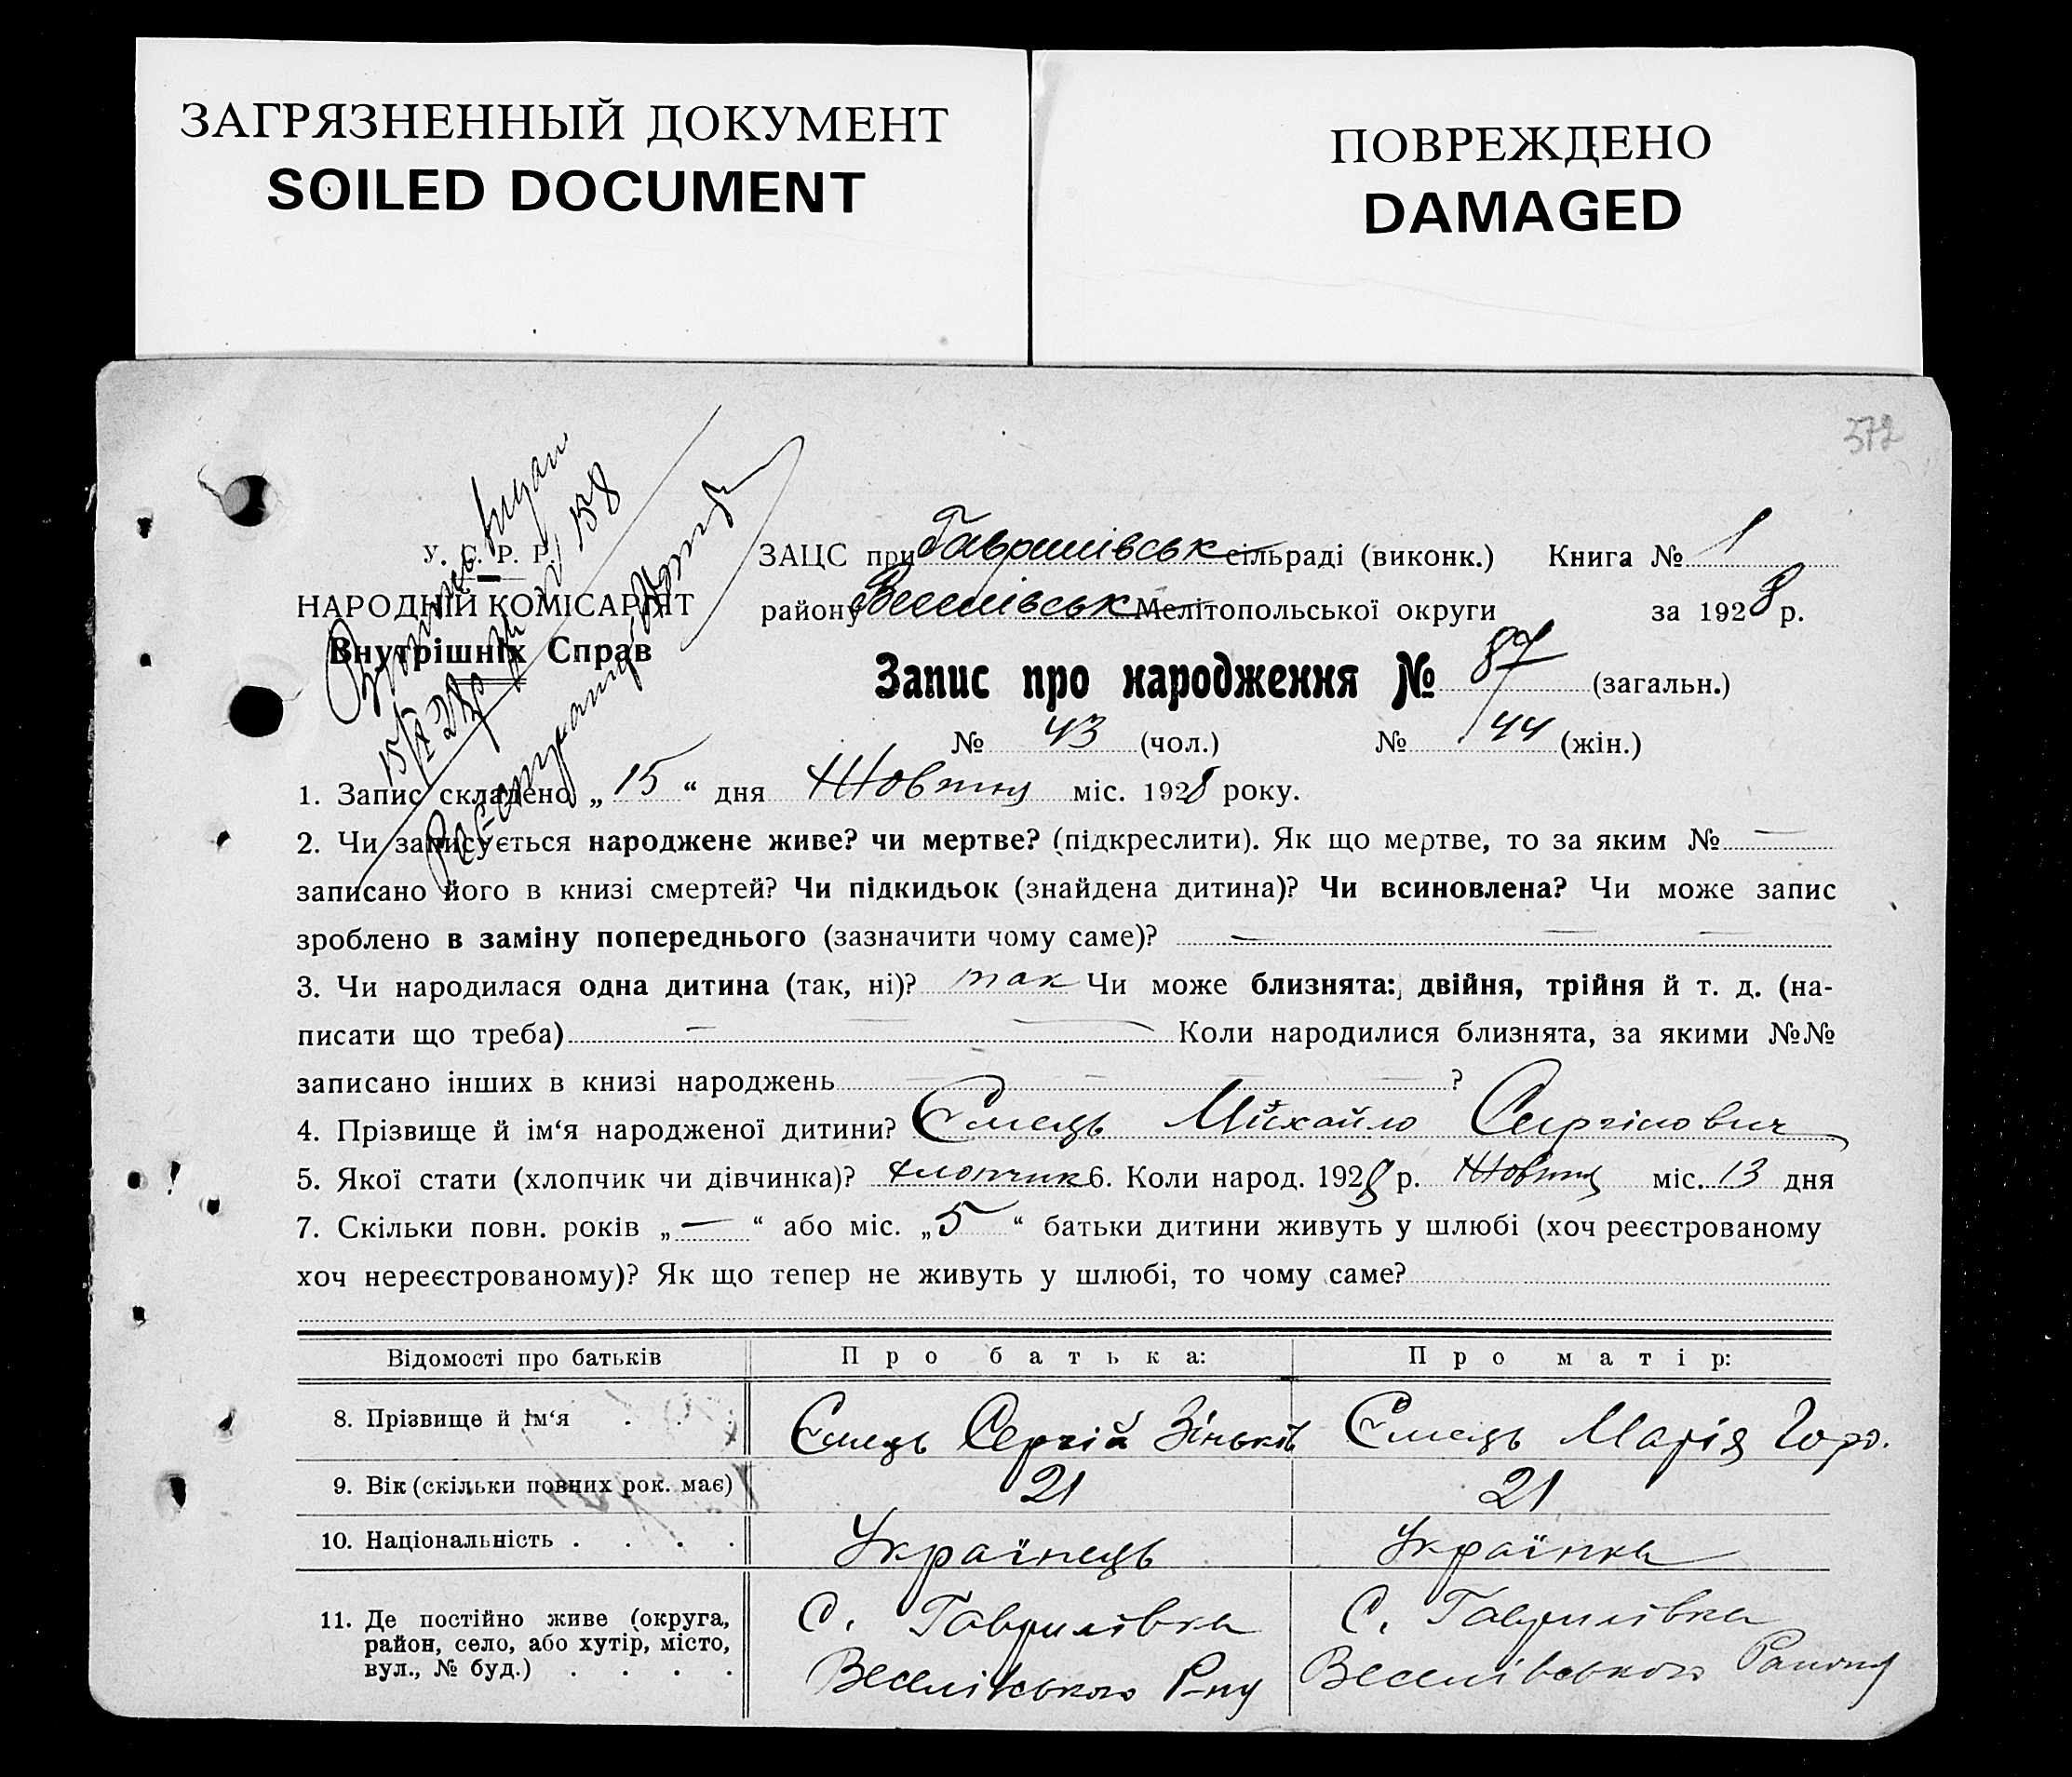 ЗАГРЯЗНЕННЫЙ ДОКУМЕНТ
SOILED DOCUMENT
ПОВРЕЖДЕНО
DAMAGED
372
У. С. Р. Р.
НАРОДНІЙ КОМІСАРІЯТ
Внутрішніх Справ
ЗАЦС при Гаврилівськ сільраді (виконк.) Книга № 1
району Веселівськ Мелітопольської округи за 1928 р.
Запис про народження № 87 (загальн.)
№ 43 (чол.) № 44 (жін.)
1. Запис складено „ 15 “ дня Жовтня міс. 1928 року.
2. Чи записується народжене живе? чи мертве? (підкреслити). Як що мертве, то за яким № —
записано його в книзі смертей? Чи підкидьок (знайдена дитина)? Чи всиновлена? Чи може запис
зроблено в заміну попереднього (зазначити чому саме)? — — —
3. Чи народилася одна дитина (так, ні)? так Чи може близнята: двійня, трійня й т. д. (на-
писати що треба) — — — Коли народилися близнята, за якими №№
записано інших в книзі народжень — — — ?
4. Прізвище й ім‘я народженої дитини? Ємець Михайло Сергійович
5. Якої стати (хлопчик чи дівчинка)? хлопчик 6. Коли народ. 1928 р. Жовтня міс. 13 дня
7. Скільки повн. років „ — “ або міс. „ 5 “ батьки дитини живуть у шлюбі (хоч реєстрованому
хоч нереєстрованому)? Як що тепер не живуть у шлюбі, то чому саме?
Відомості про батьків Про батька: Про матір:
8. Прізвище й ім‘я . . . Ємець Сергій Зіньків Ємець Марія
9. Вік (скільки повних рок. має) 21 21
10. Національність . . . . Українець Українка
11. Де постійно живе (округа, С. Гаврилівка С. Гаврилівка
район, село, або хутір, місто, Веселівського Р-ну Веселівського Району
вул., № буд.) . . . .